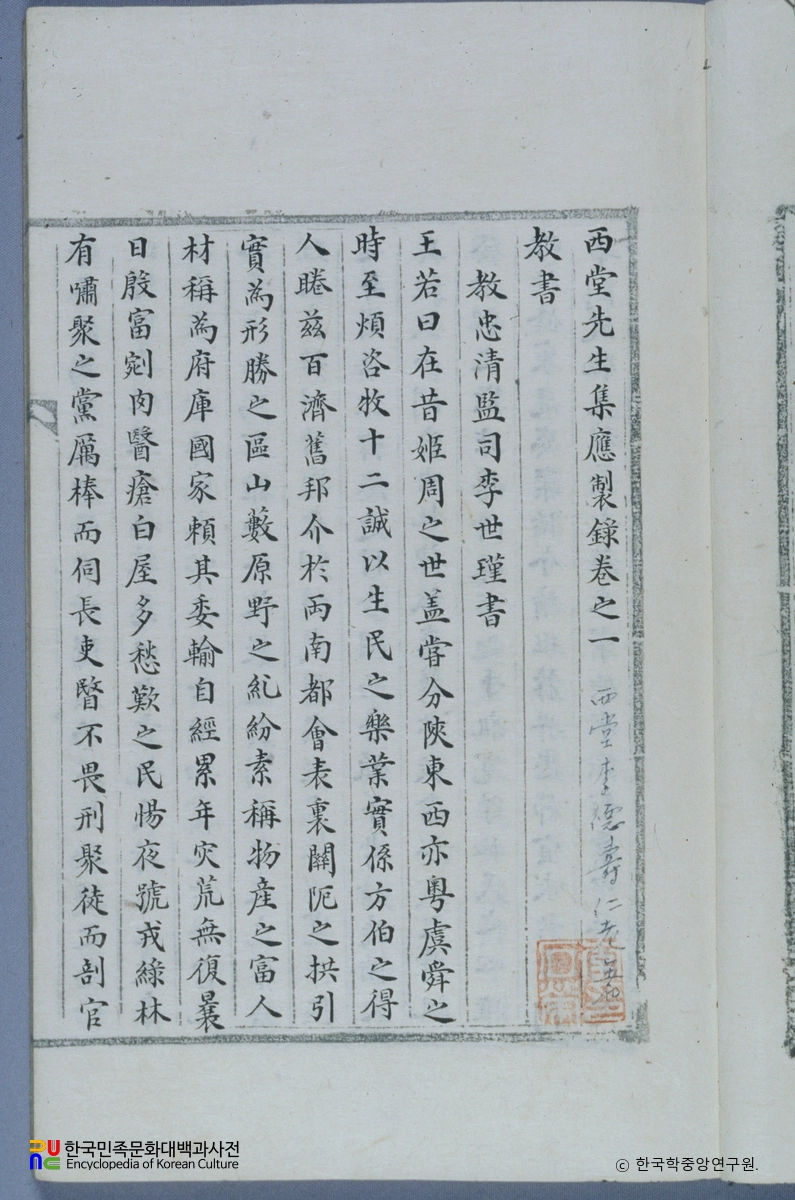 西堂先生集應製錄卷之一
西堂李德壽仁老
教書
教忠清監司李世瑾書
王若曰在昔姬周之世盖甞分陝東西亦粤虞舜之
時至煩咨牧十二誠以生民之樂業實係方伯之得
人睠玆百濟舊邦介於两南都會表裏關阨之拱引
實為形勝之區山藪原野之紀紛素稱物産之富人
材稱為府庫國家頼其委輸自經累年灾荒無復曩
日殷富剜肉醫瘡白屋多愁歎之民惕夜號戎綠林
有嘯聚之黨厲棒而伺長吏暋不畏刑聚徒而剖官
한국민족문화대백과사전
Encyclopedia of Korean Culture
ⓒ 한국학중앙연구원.